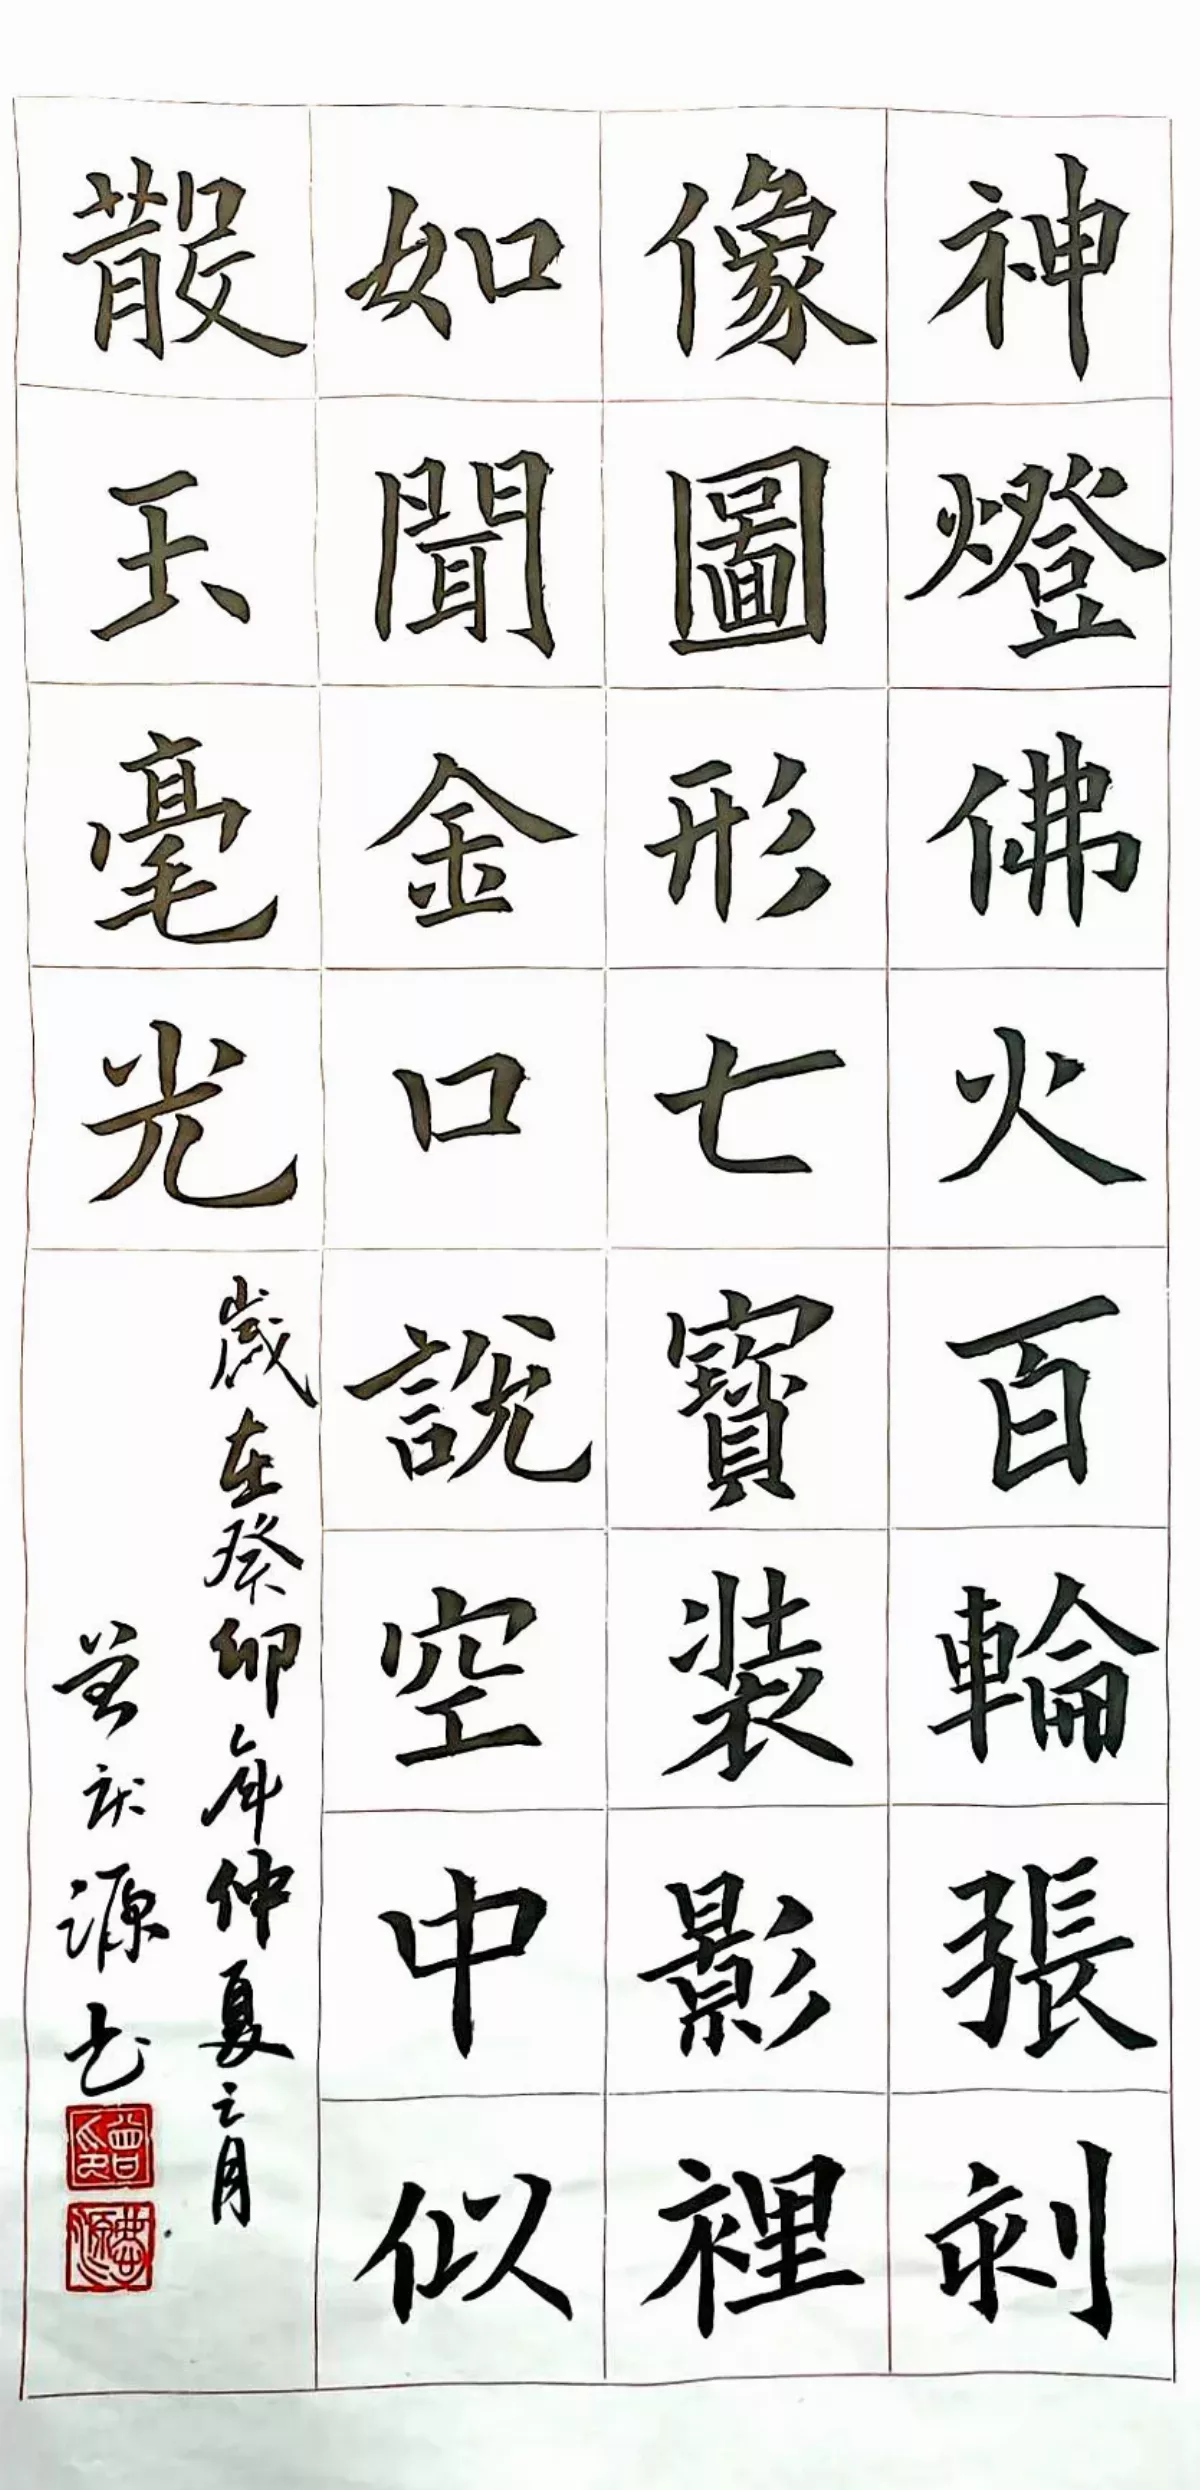 神燈佛火百輪張刹
像圖形七寶裝影裡
如聞金口說空中似
散玉毫光
歲在癸卯年仲夏之月
曾庆源书